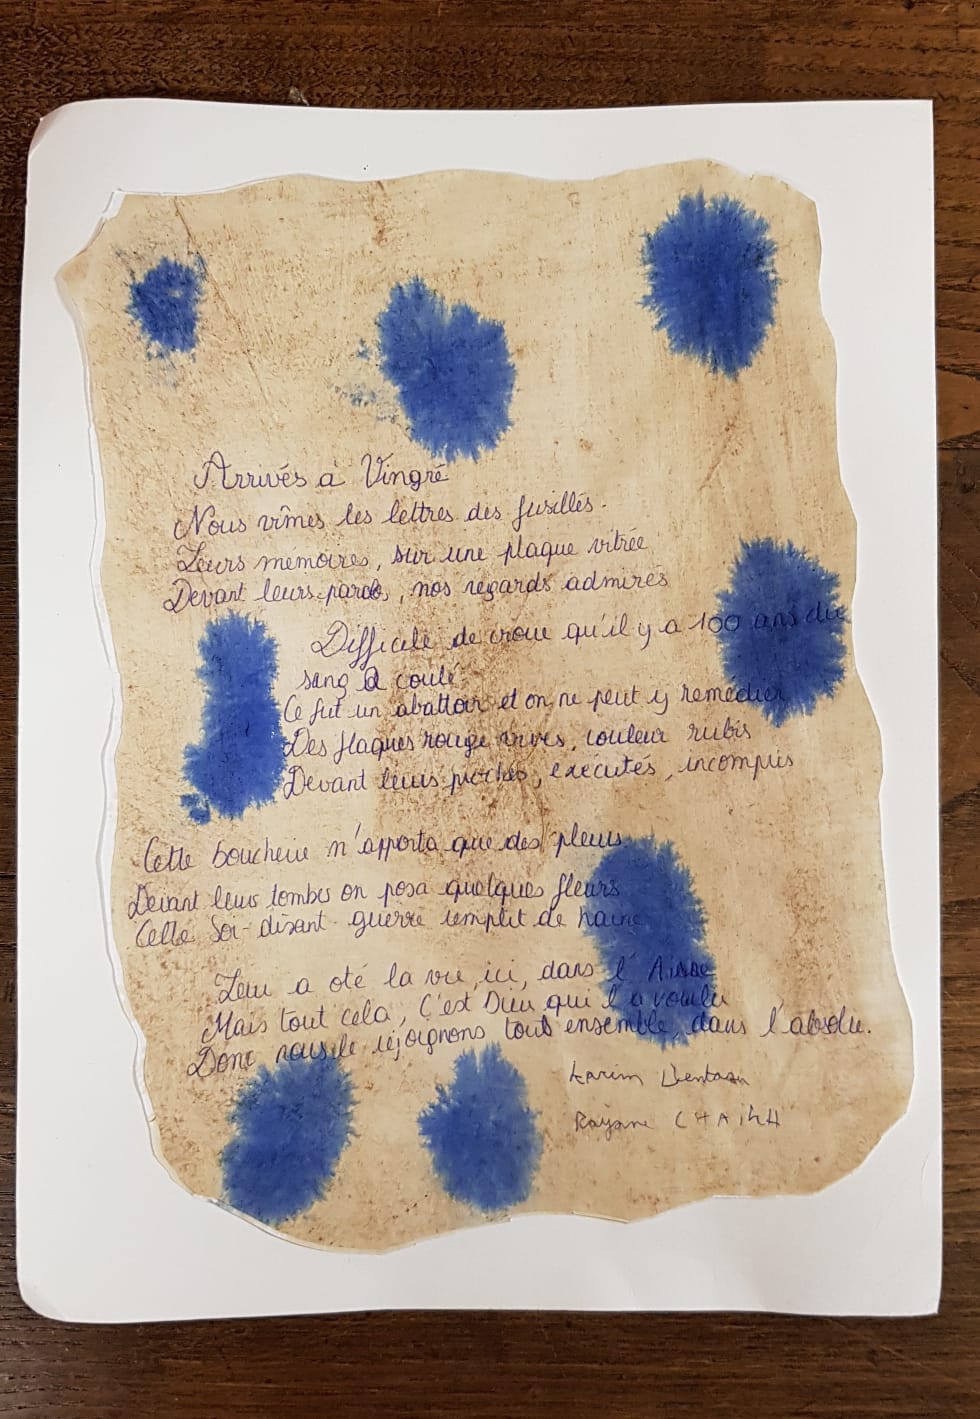 Arrivés à Vingré
Nous vîmes les lettres des fusillés.
Leurs memoires, sur une plaque vitrée
Devant leurs parole, nos regards admires
Difficile de croire qu'il y a 100 ans du
sang a coulé
Ce fut un abattoir et on ne peut y remedier
Des flaques rouge vives, couleur rubis
Devant leurs proches, executés, incompris
Cette boucherie n'apporta que des pleurs
Devant leur tombes on posa quelques fleurs
Cette soi-disant guerre remplit de haine
Leur a oté la vie, ici, dans l'Aisne
Mais tout cela, C'est Dieu qui l'a voulu
Donc nous le rejoignons tous ensemble, dans l'absolu.
Karim
Rayane CHAIKH